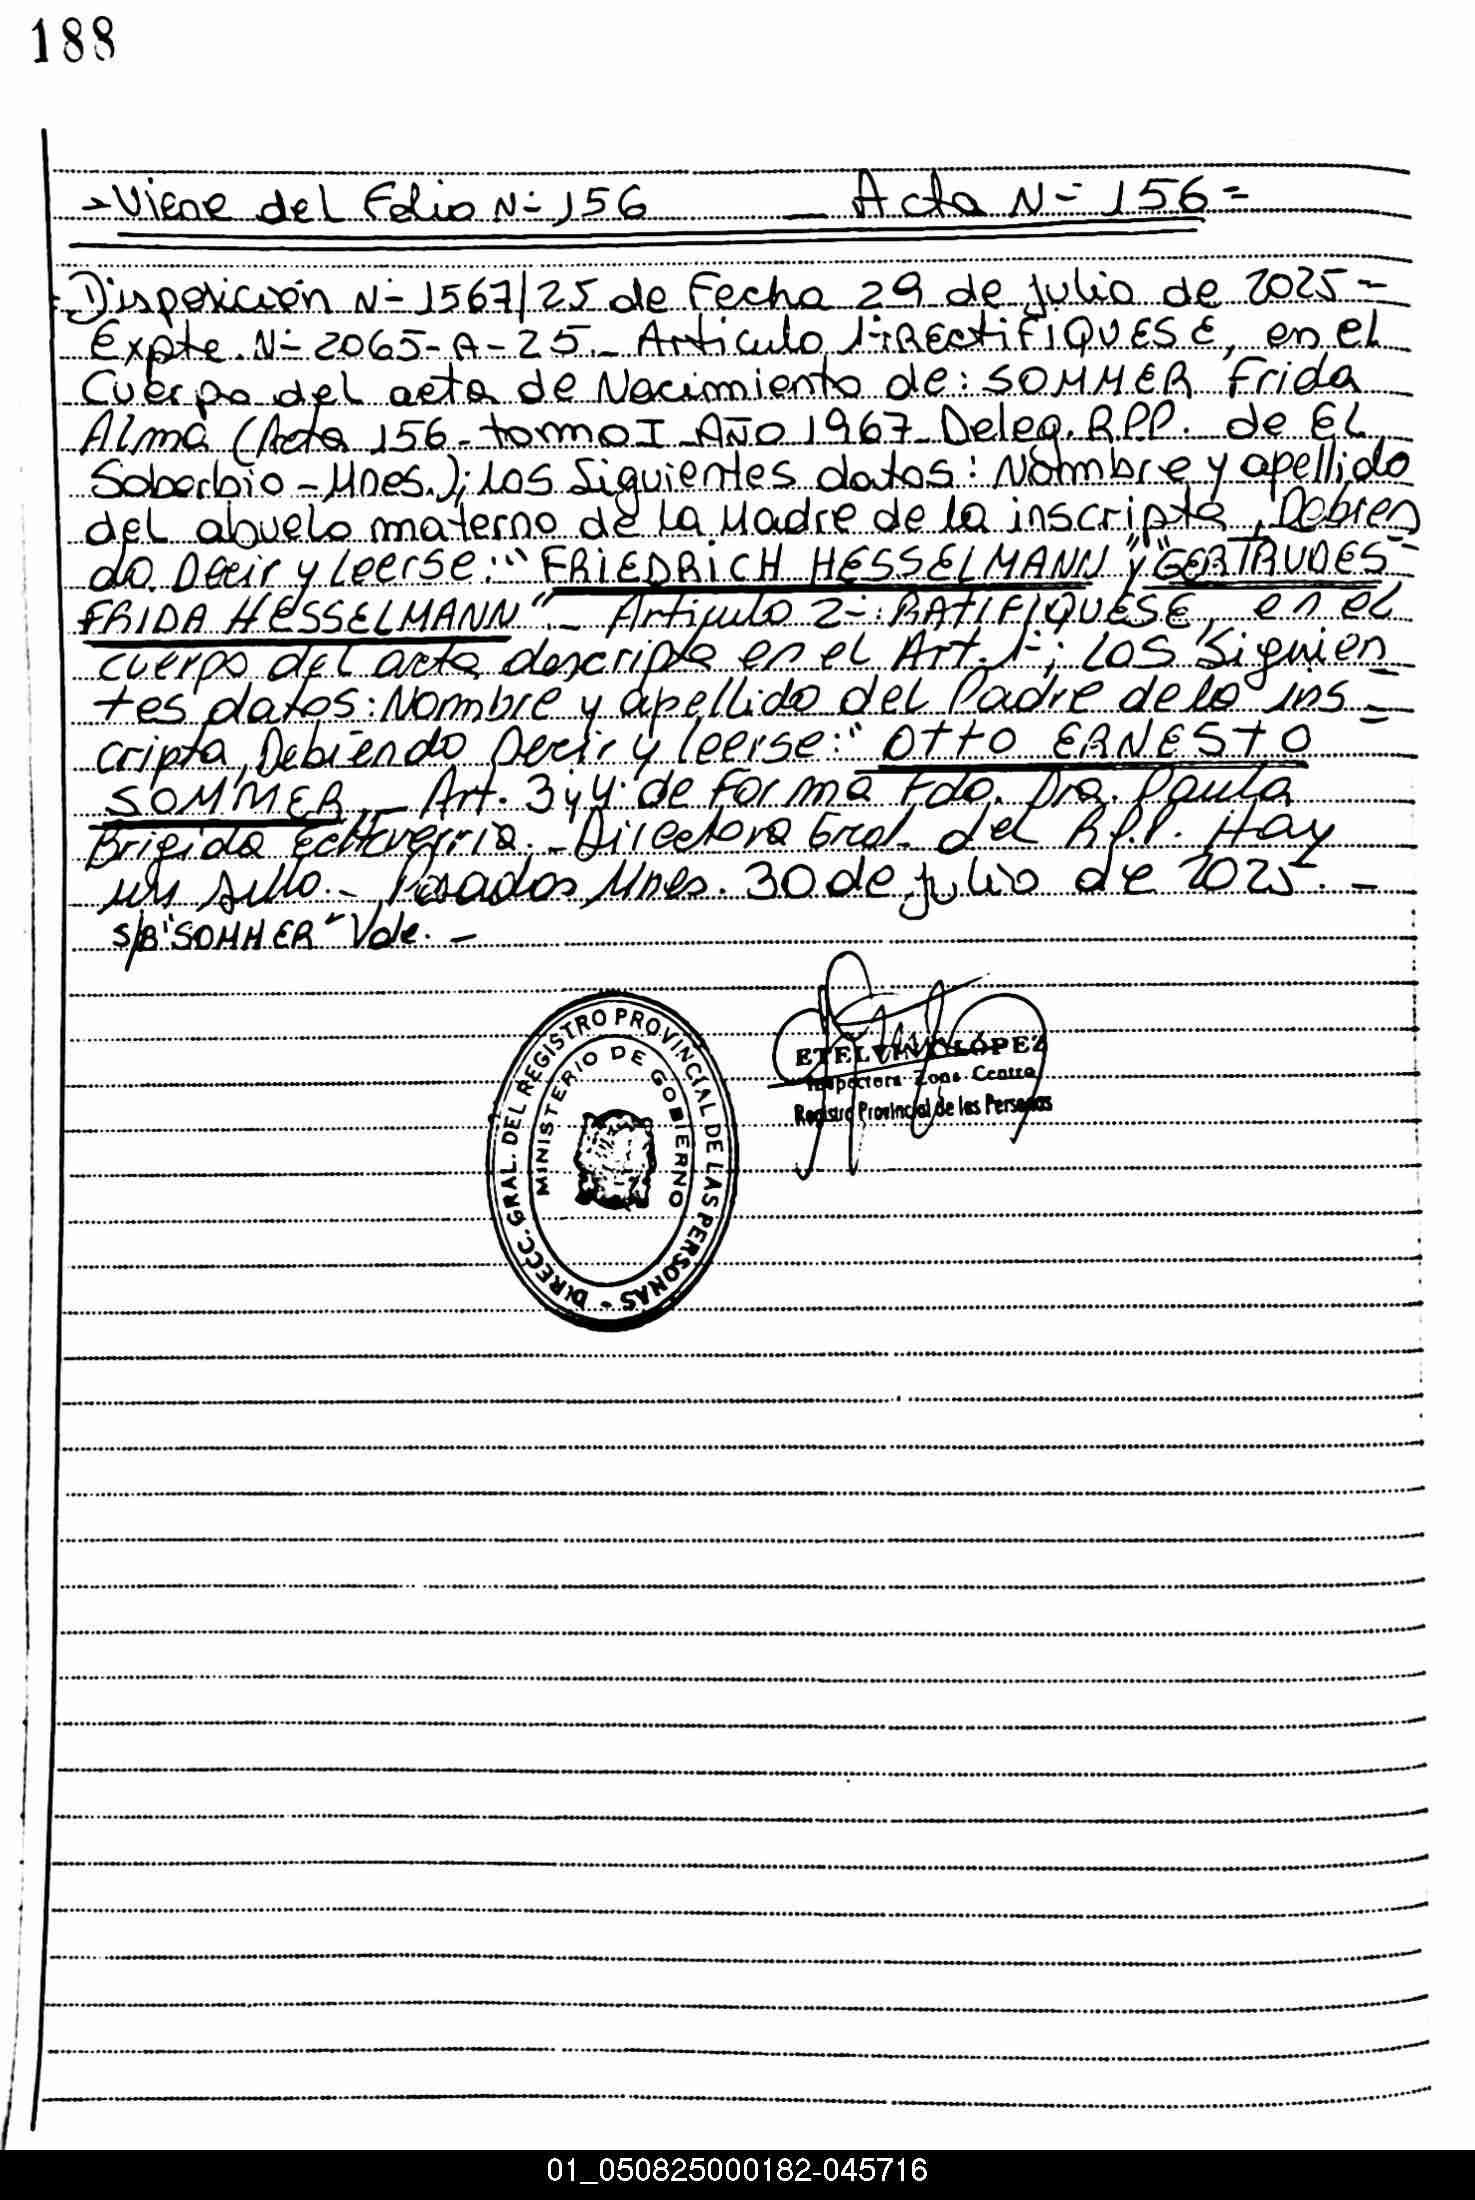 188
Viene del Folio N= 156 _ Acta N= 156 =
Disposición N= 1567/25 de Fecha 29 de julio de 2025 -
Expte. N= 2065-A-25._ Articulo 1=: RECtiFIQUESE, en el
Cuerpo del acta de Nacimiento de: SOMMER Frida
Alma (Acta 156 - tomo I - AÑO 1967 - Deleg. R.P.P. de El
Soberbio - Mnes.); Los Siguientes datos: Nombre y apellido
del abuelo materno de la Madre de la inscripta, Debien
do Decir y leerse: "FRIEDRICH HESSELMANN" y "GERTRUDES
FRIDA HESSELMANN"._ Articulo 2=: RATIFIQUESE, en el
cuerpo del acta descripta en el Art. 1=; Los Siguien
tes datos: Nombre y apellido del Padre de la ins
cripta, Debiendo Decir y leerse: "Otto ERNESto
SOMMER._ Art. 3 y 4 de Forma Fdo. Dra. Paula
Brigida Echeverria._ Directora Gral. del R.P.P. Hay
un sello._ Posadas Mnes. 30 de julio de 2025._
S/B "SOMMER" Vale._
DIRECC. GRAL. DEL REGISTRO PROVINCIAL DE LAS PERSONAS -
MINISTERIO DE GOBIERNO
ETELVINA LÓPEZ
Inspectora Zona Centro
Registro Provincial de las Personas
01_050825000182-045716